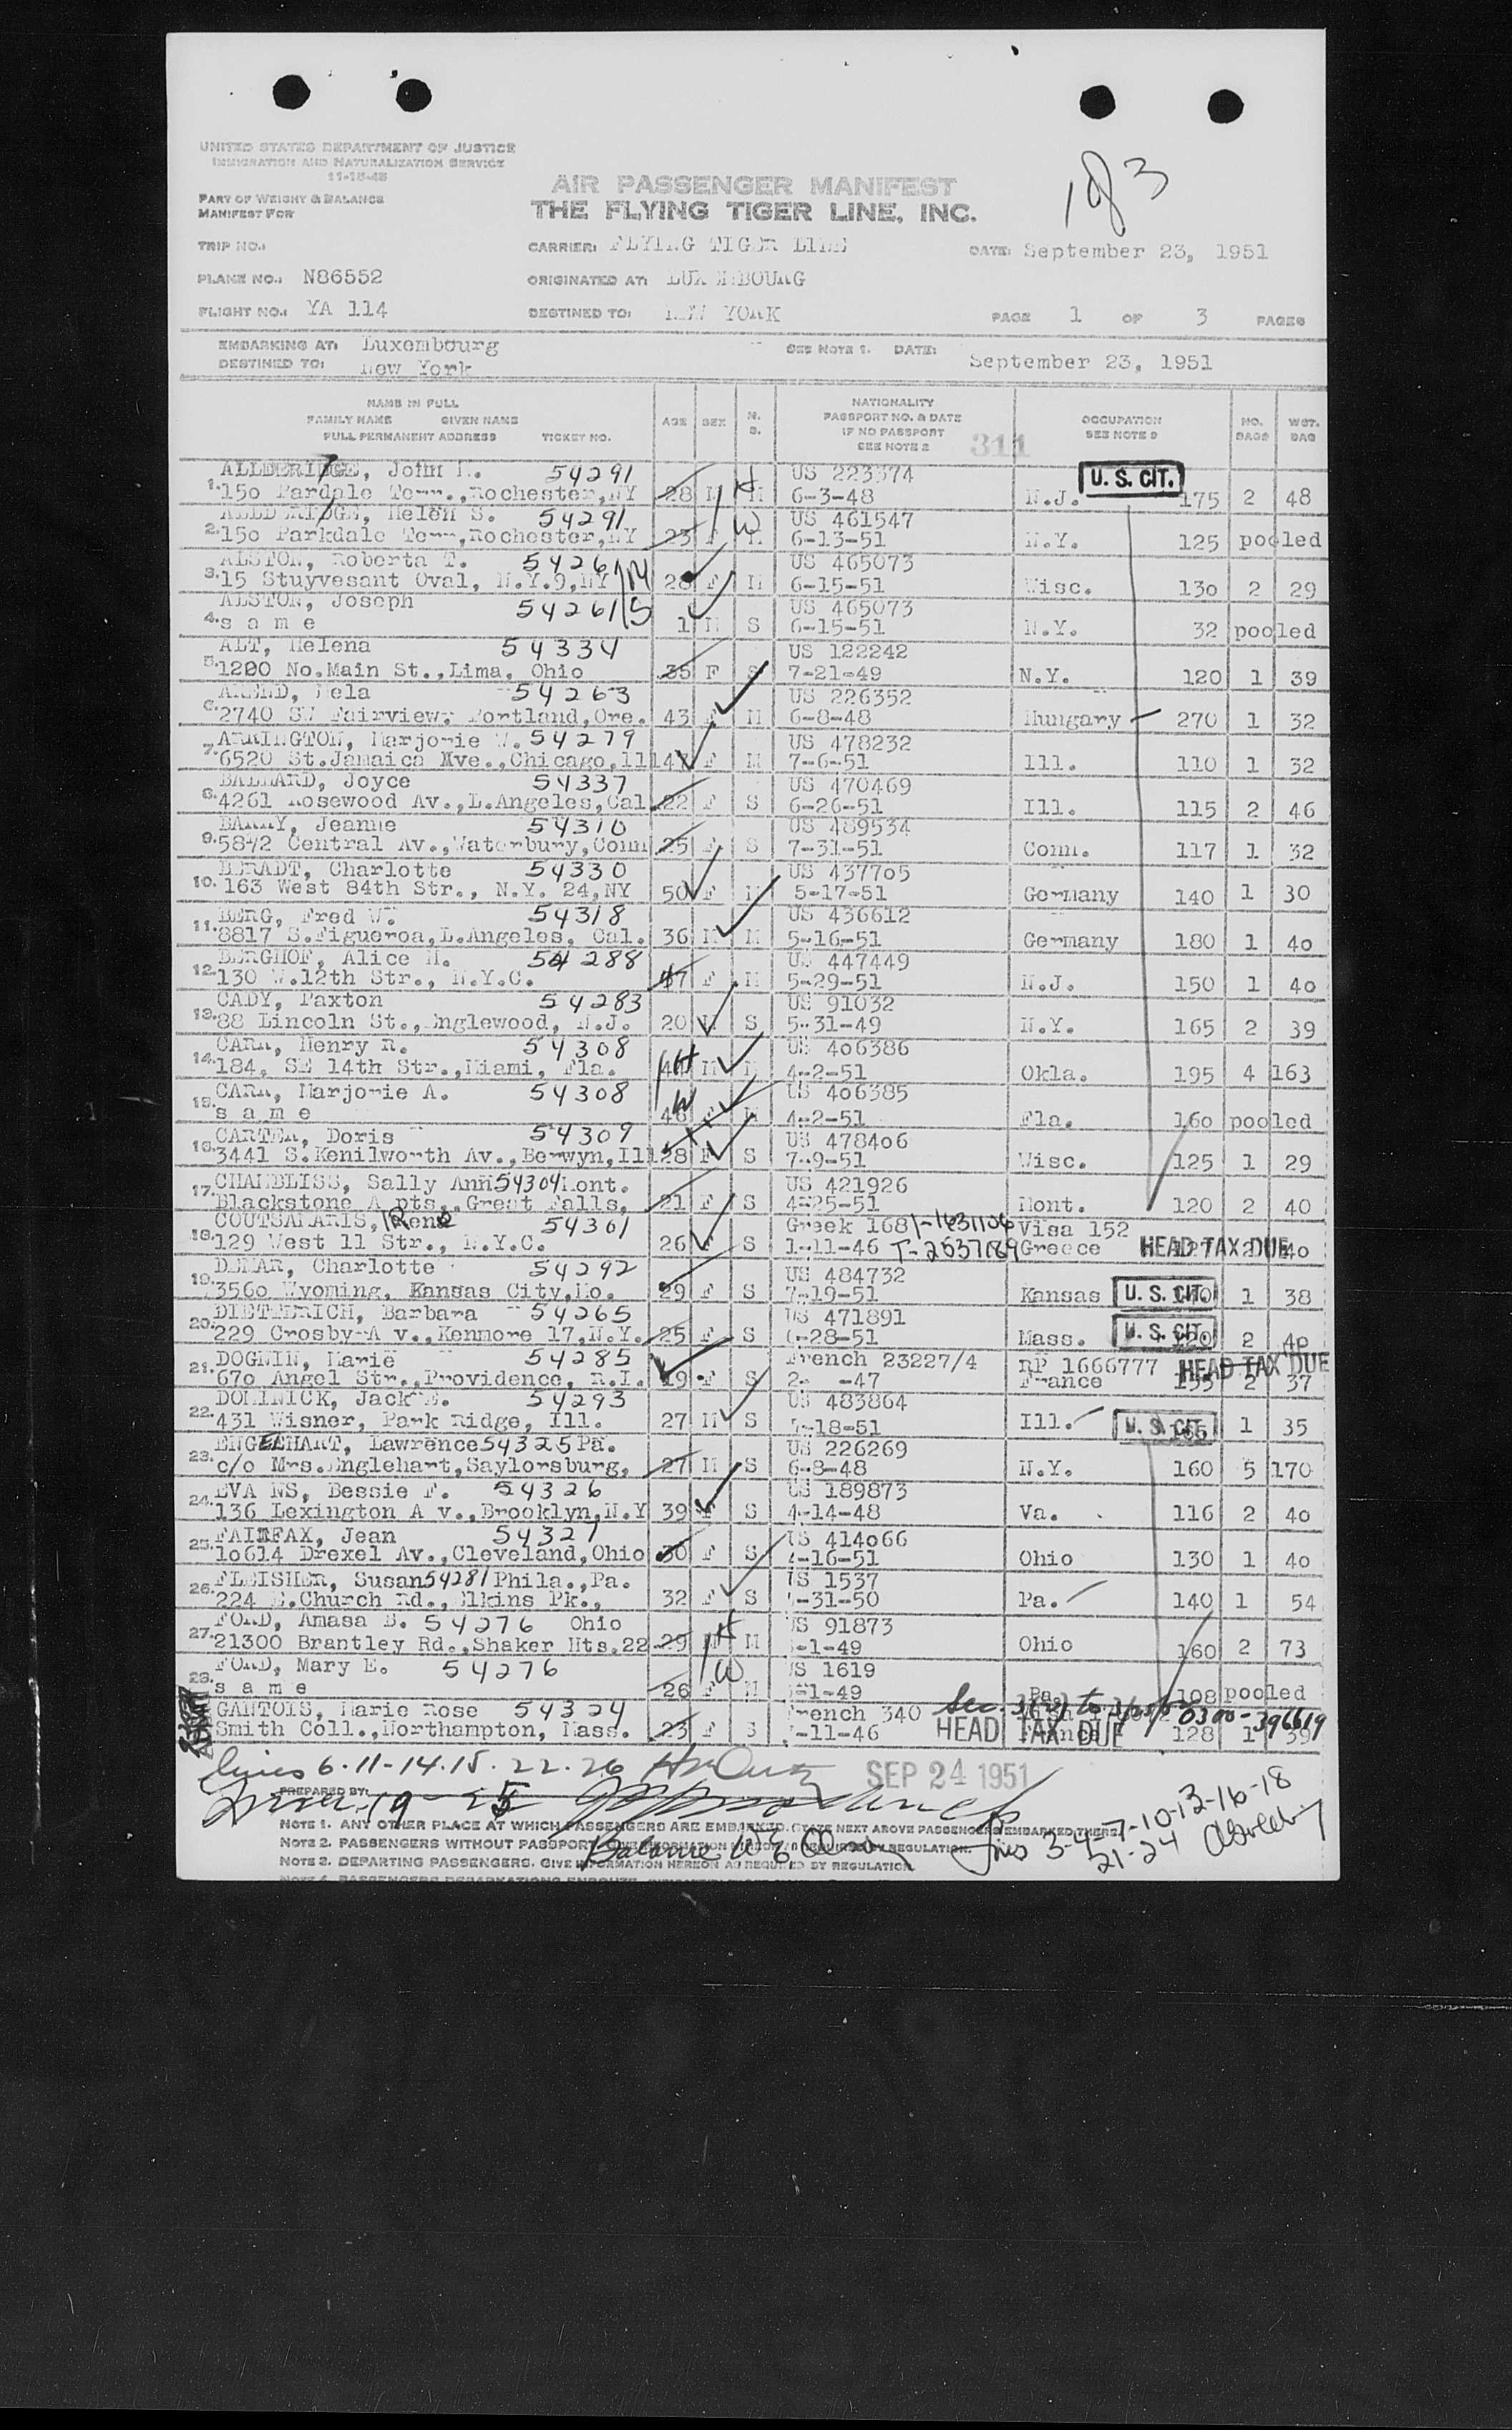 1 of 3
UNITED STATES DEPARTMENT OF JUSTICE
IMMIGRATION AND NATURALIZATION SERVICE
11-15-48
PART OF WEIGHT & BALANCE
MANIFEST FOR
AIR PASSENGER MANIFEST
THE FLYING TIGER LINE, INC.
TRIP NO.: CARRIER: FLYING TIGER LINE DATE: September 23, 1951
PLANE NO.: N86552 ORIGINATED AT: LUXEMBOURG
FLIGHT NO.: YA 114 DESTINED TO: NEW YORK PAGE 1 OF 3 PAGES
EMBARKING AT: Luxembourg SEE NOTE 1. DATE: September 23, 1951
DESTINED TO: New York
NAME IN FULL
FAMILY NAME GIVEN NAME
FULL PERMANENT ADDRESS TICKET NO.
AGE SEX M. S.
NATIONALITY
PASSPORT NO. & DATE
IF NO PASSPORT
SEE NOTE 2
311
OCCUPATION
SEE NOTE 3
NO. BAGS WGT. BAG
ALLDERIDGE, John 54291 US 223374 U. S. CIT.
1. 150 Pardale Terr., Rochester, NY 28 M M 6-3-48 N.J. 175 2 48
ALLDERIDGE, Helen S. 54291 W US 461547
2. 150 Parkdale Terr, Rochester, NY 23 F M 6-13-51 N.Y. 125 pooled
ALSTON, Roberta T. 54261 M US 465073
3. 15 Stuyvesant Oval, N.Y.9, NY 28 F M 6-15-51 Wisc. 130 2 29
ALSTON, Joseph 54261 S US 465073
4. s a m e 1 M S 6-15-51 N.Y. 32 pooled
ALT, Helena 54334 US 122242
5. 1200 No. Main St., Lima, Ohio 35 F S 7-21-49 N.Y. 120 1 39
AREND, Bela 54263 US 226352
6. 2740 SW Fairview, Portland, Ore. 43 F M 6-8-48 Hungary 270 1 32
ARRINGTON, Marjorie W. 54279 US 478232
7. 6520 St. Jamaica Ave., Chicago, Ill F M 7-6-51 Ill. 110 1 32
BALLARD, Joyce 54337 US 470469
8. 4261 Rosewood Av., L. Angeles, Cal 22 F S 6-26-51 Ill. 115 2 46
BARRY, Jeanne 54310 US 489534
9. Central Av., Waterbury, Conn 25 F S 7-31-51 Conn. 117 1 32
BERADT, Charlotte 54330 US 437705
10. 163 West 84th Str., N.Y. 24, NY 50 F M 5-17-51 Germany 140 1 30
BERG, Fred W. 54318 US 436612
11. 8817 S. Figueroa, L. Angeles, Cal. 36 M M 5-16-51 Germany 180 1 40
BERGHOF, Alice 54288 US 447449
12. 130 W. 12th Str., N.Y.C. 47 F M 5-29-51 N.J. 150 1 40
CADY, Paxton 54283 US 91032
13. 88 Lincoln St., Englewood, N.J. 20 M S 5-31-49 N.Y. 165 2 39
CARR, Henry R. 54308 H US 406386
14. 184, SE 14th Str., Miami, Fla. M M 4-2-51 Okla. 195 4 163
CARR, Marjorie A. 54308 W US 406385
15. s a m e 48 F M 4-2-51 Fla. 160 pooled
CARTER, Doris 54309 US 478406
16. 3441 S. Kenilworth Av., Berwyn, Ill 28 F S 7-9-51 Wisc. 125 1 29
CHAMBLISS, Sally Ann 54304 Mont. US 421926
17. Blackstone A pts., Great Falls, 21 F S 4-25-51 Mont. 120 2 40
COUTSAMARIS, Irene 54301 Greek 1681 Visa 152
18. 129 West 11 Str., N.Y.C. 26 F S 1-11-46 Greece HEAD TAX DUE 2 40
DEMAR, Charlotte 54292 US 484732
19. 3560 Wyoming, Kansas City, Mo. 29 F S 7-19-51 Kansas U. S. CIT. 1 38
DIETDRICH, Barbara 54265 US 471891
20. 229 Crosby A v., Kenmore 17, N.Y. 25 F S 6-28-51 Mass. U. S. CIT. 2 40
DOGNIN, Marie 54285 French 23227/4 RP 1666777
21. 670 Angel Str., Providence, R.I. 19 F S -47 France HEAD TAX DUE 2 37
DOMINICK, Jack E. 54293 US 483864
22. 431 Wisner, Park Ridge, Ill. 27 M S 7-18-51 Ill. U. S. CIT. 1 35
ENGLEHART, Lawrence 54325 Pa. US 226269
23. c/o Mrs. Englehart, Saylorsburg, 27 M S 6-8-48 N.Y. 160 5 170
EVA NS, Bessie F. 54326 US 189873
24. 136 Lexington A v., Brooklyn, N.Y 39 F S 4-14-48 Va. 116 2 40
FAIRFAX, Jean 54321 US 414066
25. 10614 Drexel Av., Cleveland, Ohio 30 F S 4-16-51 Ohio 130 1 40
FLEISHER, Susan 54281 Phila., Pa. US 1537
26. 224 E. Church Rd., Elkins Pk., 32 F S -31-50 Pa. 140 1 54
FORD, Amasa B. 54276 Ohio H US 91873
27. 21300 Brantley Rd., Shaker Hts. 22 29 M M -1-49 Ohio 160 2 73
FORD, Mary E. 54276 W US 1619
28. s a m e 26 F M -1-49 Pa. 108 pooled
GANTOIS, Marie Rose 54324 French 340 0300-396619
Smith Coll., Northampton, Mass. 23 F S -11-46 HEAD TAX DUE 128 1 39
lines 6-11-14-15-22-26
SEP 24 1951
PREPARED BY:
NOTE 1. ANY OTHER PLACE AT WHICH PASSENGERS ARE EMBARKED. (STATE NEXT ABOVE PASSENGERS EMBARKED THERE)
lines 3-4-7-10-13-16-18
21-24
NOTE 2. PASSENGERS WITHOUT PASSPORT, GIVE INFORMATION HEREON AS REQUIRED BY REGULATION.
Balance
NOTE 3. DEPARTING PASSENGERS. GIVE INFORMATION HEREON AS REQUIRED BY REGULATION.